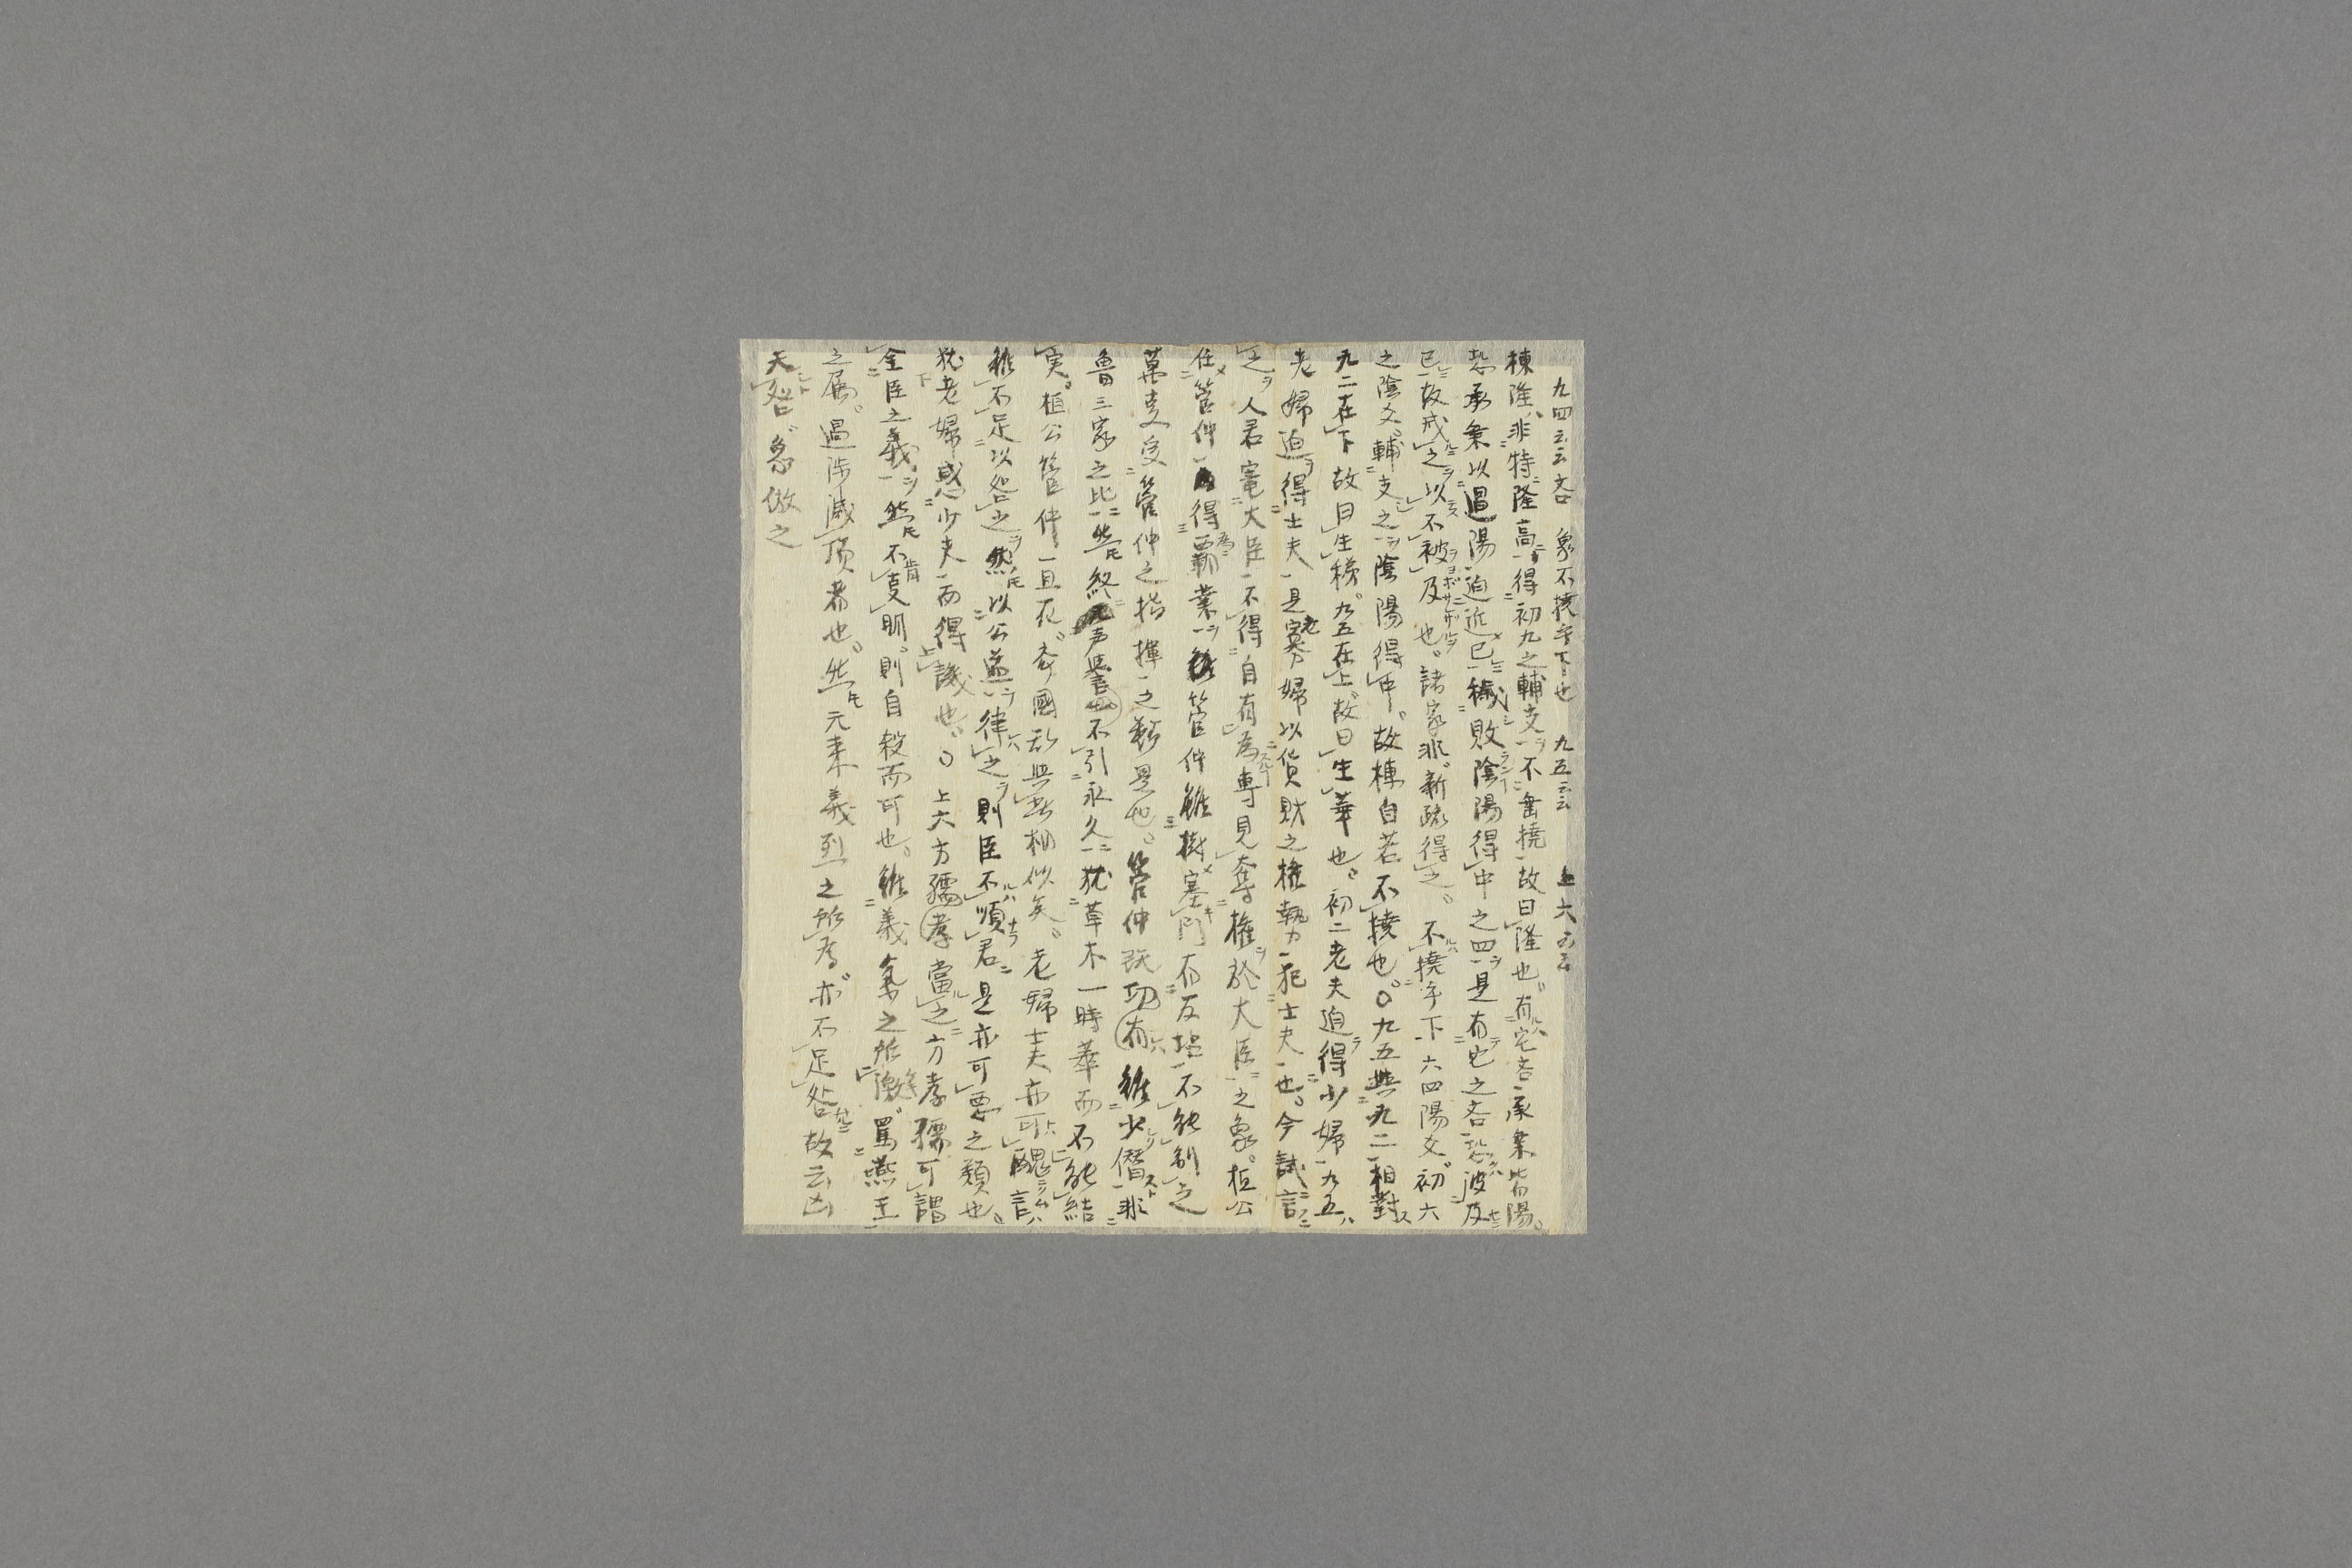 九四云云吝 象不撓乎下也 九五云云 上六云云
棟隆、非特隆高、得初九之輔支、不垂撓、故曰隆也。有它吝、承乗皆陽。
恐承乗以過陽迫近己、穢敗陰陽得中之四、是有它之吝、恐波及
己、故戒之、以不被及也。諸家非、新疏得之。不撓乎下、六四陽爻、初六
之陰爻、輔支之、陰陽得中、故棟自若不撓也。○九五與九二相對
九二在下、故曰生稊。九五在上、故曰生華也。初二老夫迫得少婦、九五
老婦迫得士夫、是寡婦以貨財之権勢犯士夫也。今試言
之、人君寵大臣、不得自有為專見奪権於大臣之象。桓公
任管仲得覇業、管仲雖樹塞門有反坫、不能制之
萬吏受管仲之指揮之類是也。管仲既功有、雖少僭、非
魯三家之比、然終声誉不引永久、猶草木一時華而不能結
実。桓公管仲一旦死、斉國乱與此相似矣。老婦士夫亦可醜、言
雖不足以咎之、然以公道律之、則臣不順君、是亦可悪之類也。
猶老婦惑少夫而得譏也。○上六方孺孝當之、方孝孺可謂
全臣之義、然不肯支明、則自殺而可也。雖義気之所激、罵燕王
之属。過渉滅頂者也。然元来義烈之所為、亦不足咎、故云凶
无咎。象倣之